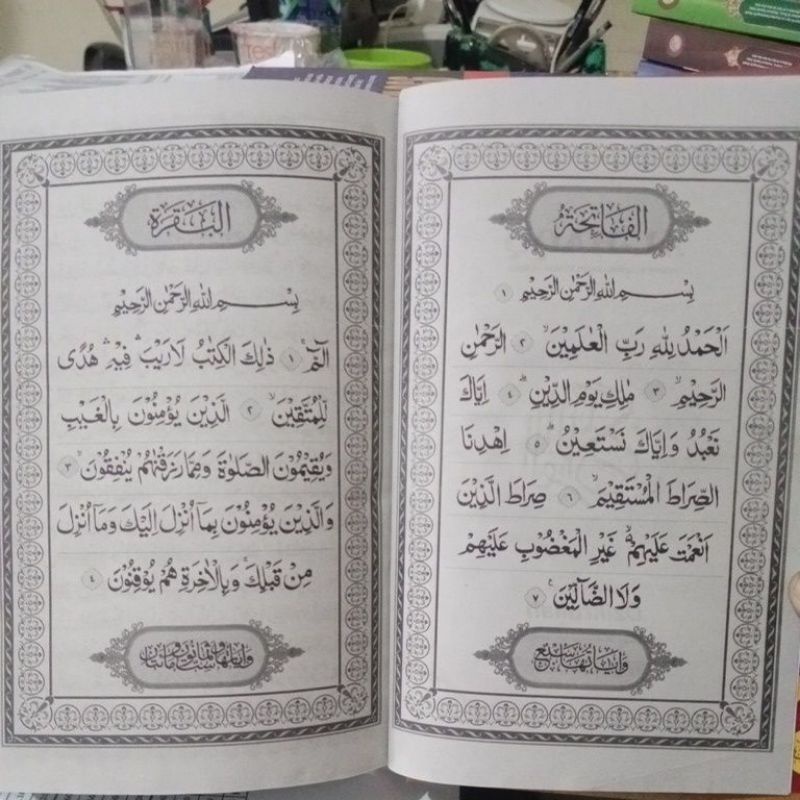 الفاتحة
بِسْمِ اللهِ الرَّحْمٰنِ الرَّحِيْمِ ١
اَلْحَمْدُ لِلّٰهِ رَبِّ الْعٰلَمِيْنَۙ ٢ الرَّحْمٰنِ
الرَّحِيْمِۙ ٣ مٰلِكِ يَوْمِ الدِّيْنِۗ ٤ اِيَّاكَ
نَعْبُدُ وَاِيَّاكَ نَسْتَعِيْنُۗ ٥ اِهْدِنَا
الصِّرَاطَ الْمُسْتَقِيْمَۙ ٦ صِرَاطَ الَّذِيْنَ
اَنْعَمْتَ عَلَيْهِمْۙ غَيْرِ الْمَغْضُوْبِ عَلَيْهِمْ
وَلَا الضَّاۤلِّيْنَ ࣖ ٧
وآياتها سبع
البقرة
بِسْمِ اللهِ الرَّحْمٰنِ الرَّحِيْمِ
الۤمّۤۚ ١ ذٰلِكَ الْكِتٰبُ لَا رَيْبَۛ فِيْهِۛ هُدًى
لِّلْمُتَّقِيْنَۙ ٢ الَّذِيْنَ يُؤْمِنُوْنَ بِالْغَيْبِ
وَيُقِيْمُوْنَ الصَّلٰوةَ وَمِمَّا رَزَقْنٰهُمْ يُنْفِقُوْنَۙ ٣
وَالَّذِيْنَ يُؤْمِنُوْنَ بِمَآ اُنْزِلَ اِلَيْكَ وَمَآ اُنْزِلَ
مِنْ قَبْلِكَۚ وَبِالْاٰخِرَةِ هُمْ يُوْقِنُوْنَۗ ٤
وآياتها مائتان وست وثمانون